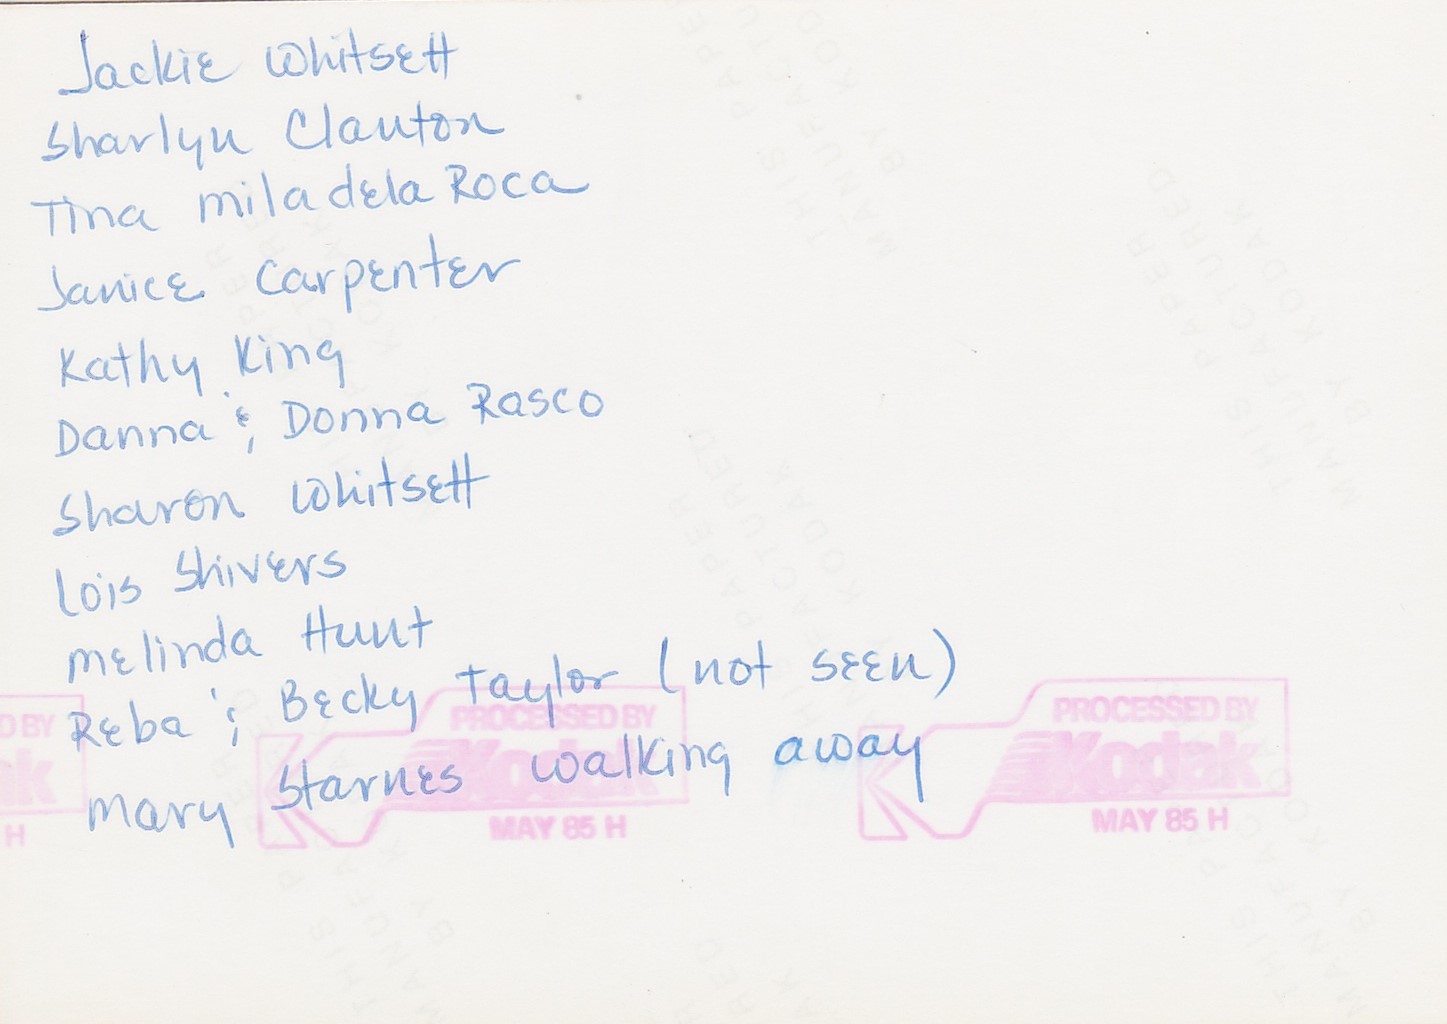 Jackie Whitsett
Sharlyn Clanton
Tina mila dela Roca
Janice Carpenter
Kathy King
Danna & Donna Rasco
Sharon Whitsett
Lois Shivers
Melinda Hunt
Reba & Becky Taylor (not seen)
Mary Starnes walking away
PROCESSED BY
Kodak
MAY 85 H
PROCESSED BY
Kodak
MAY 85 H
D BY
ak
H
THIS PAPER
MANUFACTURED
BY KODAK